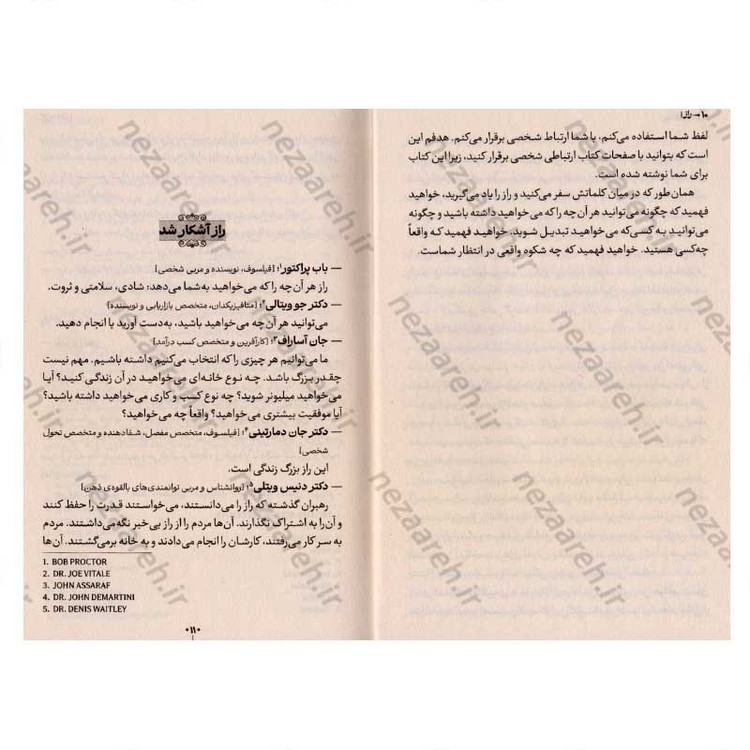 ۱۰ — راز |
لفظ شما استفاده می‌کنم، با شما ارتباط شخصی برقرار می‌کنم. هدفم این
است که بتوانید با صفحات کتاب ارتباطی شخصی برقرار کنید، زیرا این کتاب
برای شما نوشته شده است.
همان‌طور که در میان کلماتش سفر می‌کنید و راز را یاد می‌گیرید، خواهید
فهمید که چگونه می‌توانید هر آن چه را که می‌خواهید داشته باشید و چگونه
می‌توانید به کسی که می‌خواهید تبدیل شوید. خواهید فهمید که واقعاً
چه‌کسی هستید. خواهید فهمید که چه شکوه واقعی در انتظار شماست.
راز آشکار شد
— باب پراکتور۱: [فیلسوف، نویسنده و مربی شخصی]
راز هر آن چه را که می‌خواهید به‌شما می‌دهد: شادی، سلامتی و ثروت.
— دکتر جو ویتالی۲: [متافیزیکدان، متخصص بازاریابی و نویسنده]
می‌توانید هر آن چه می‌خواهید باشید، به‌دست آورید یا انجام دهید.
— جان آساراف۳: [کارآفرین و متخصص کسب درآمد]
ما می‌توانیم هر چیزی را که انتخاب می‌کنیم داشته باشیم. مهم نیست
چقدر بزرگ باشد. چه نوع خانه‌ای می‌خواهید در آن زندگی کنید؟ آیا
می‌خواهید میلیونر شوید؟ چه نوع کسب و کاری می‌خواهید داشته باشید؟
آیا موفقیت بیشتری می‌خواهید؟ واقعاً چه می‌خواهید؟
— دکتر جان دمارتینی۴: [فیلسوف، متخصص مفصل، شفادهنده و متخصص تحول
شخصی]
این راز بزرگ زندگی است.
— دکتر دنیس ویتلی۵: [روانشناس و مربی توانمندی‌های بالقوه‌ی ذهن]
رهبران گذشته که راز را می‌دانستند، می‌خواستند قدرت را حفظ کنند
و آن‌را به اشتراک نگذارند. آن‌ها مردم را از راز بی‌خبر نگه می‌داشتند. مردم
به سر کار می‌رفتند، کارشان را انجام می‌دادند و به خانه برمی‌گشتند. آن‌ها
1. BOB PROCTOR
2. DR. JOE VITALE
3. JOHN ASSARAF
4. DR. JOHN DEMARTINI
5. DR. DENIS WAITLEY
۱۱
nezaareh.ir
nezaareh.ir
nezaareh.ir
nezaareh.ir
nezaareh.ir
nezaareh.ir
nezaareh.ir
nezaareh.ir